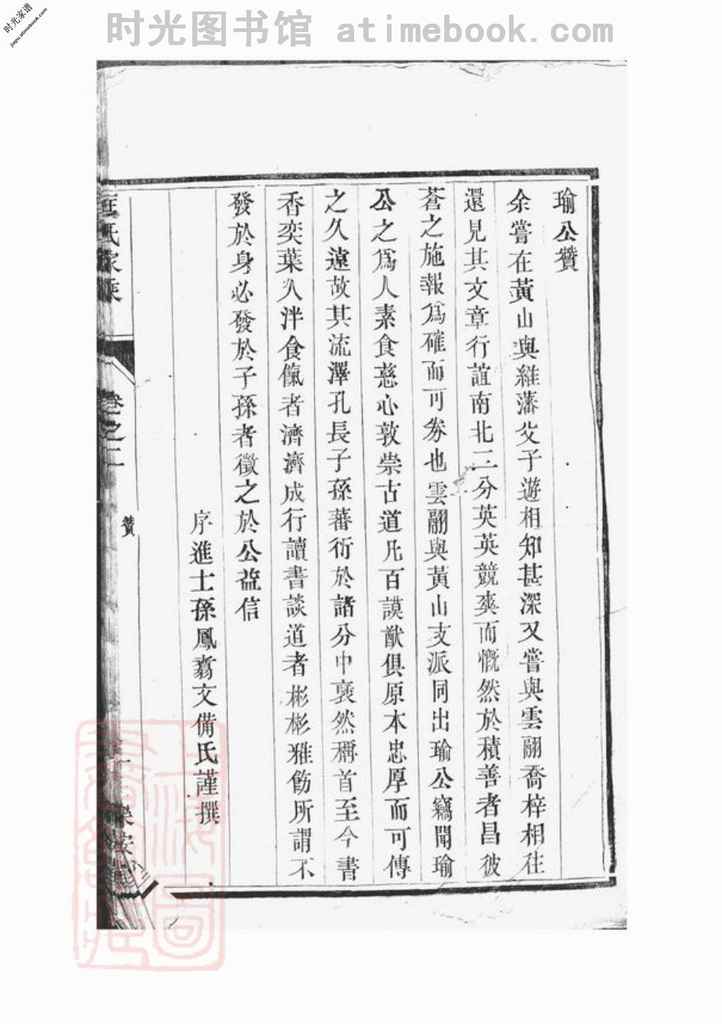 时光图书馆 atimebook.com
时光家谱
jiapu.atimebook.com
瑜公贊
余嘗在黃山與維藩父子遊相知甚深又嘗與雲翮喬梓相往
還見其文章行誼南北三分英英競爽而慨然於積善者昌彼
蒼之施報爲確而可券也雲翮與黃山支派同出瑜公竊聞瑜
公之爲人素食慈心敦崇古道凡百謨猷俱原本忠厚而可傳
之久遠故其流澤孔長子孫蕃衍於諸分中裒然稱首至今書
香奕葉入泮食餼者濟濟成行讀書談道者彬彬雅飭所謂不
發於身必發於子孫者徵之於公益信
序進士孫鳳翥文備氏謹撰
氏家乘 卷之二 贊